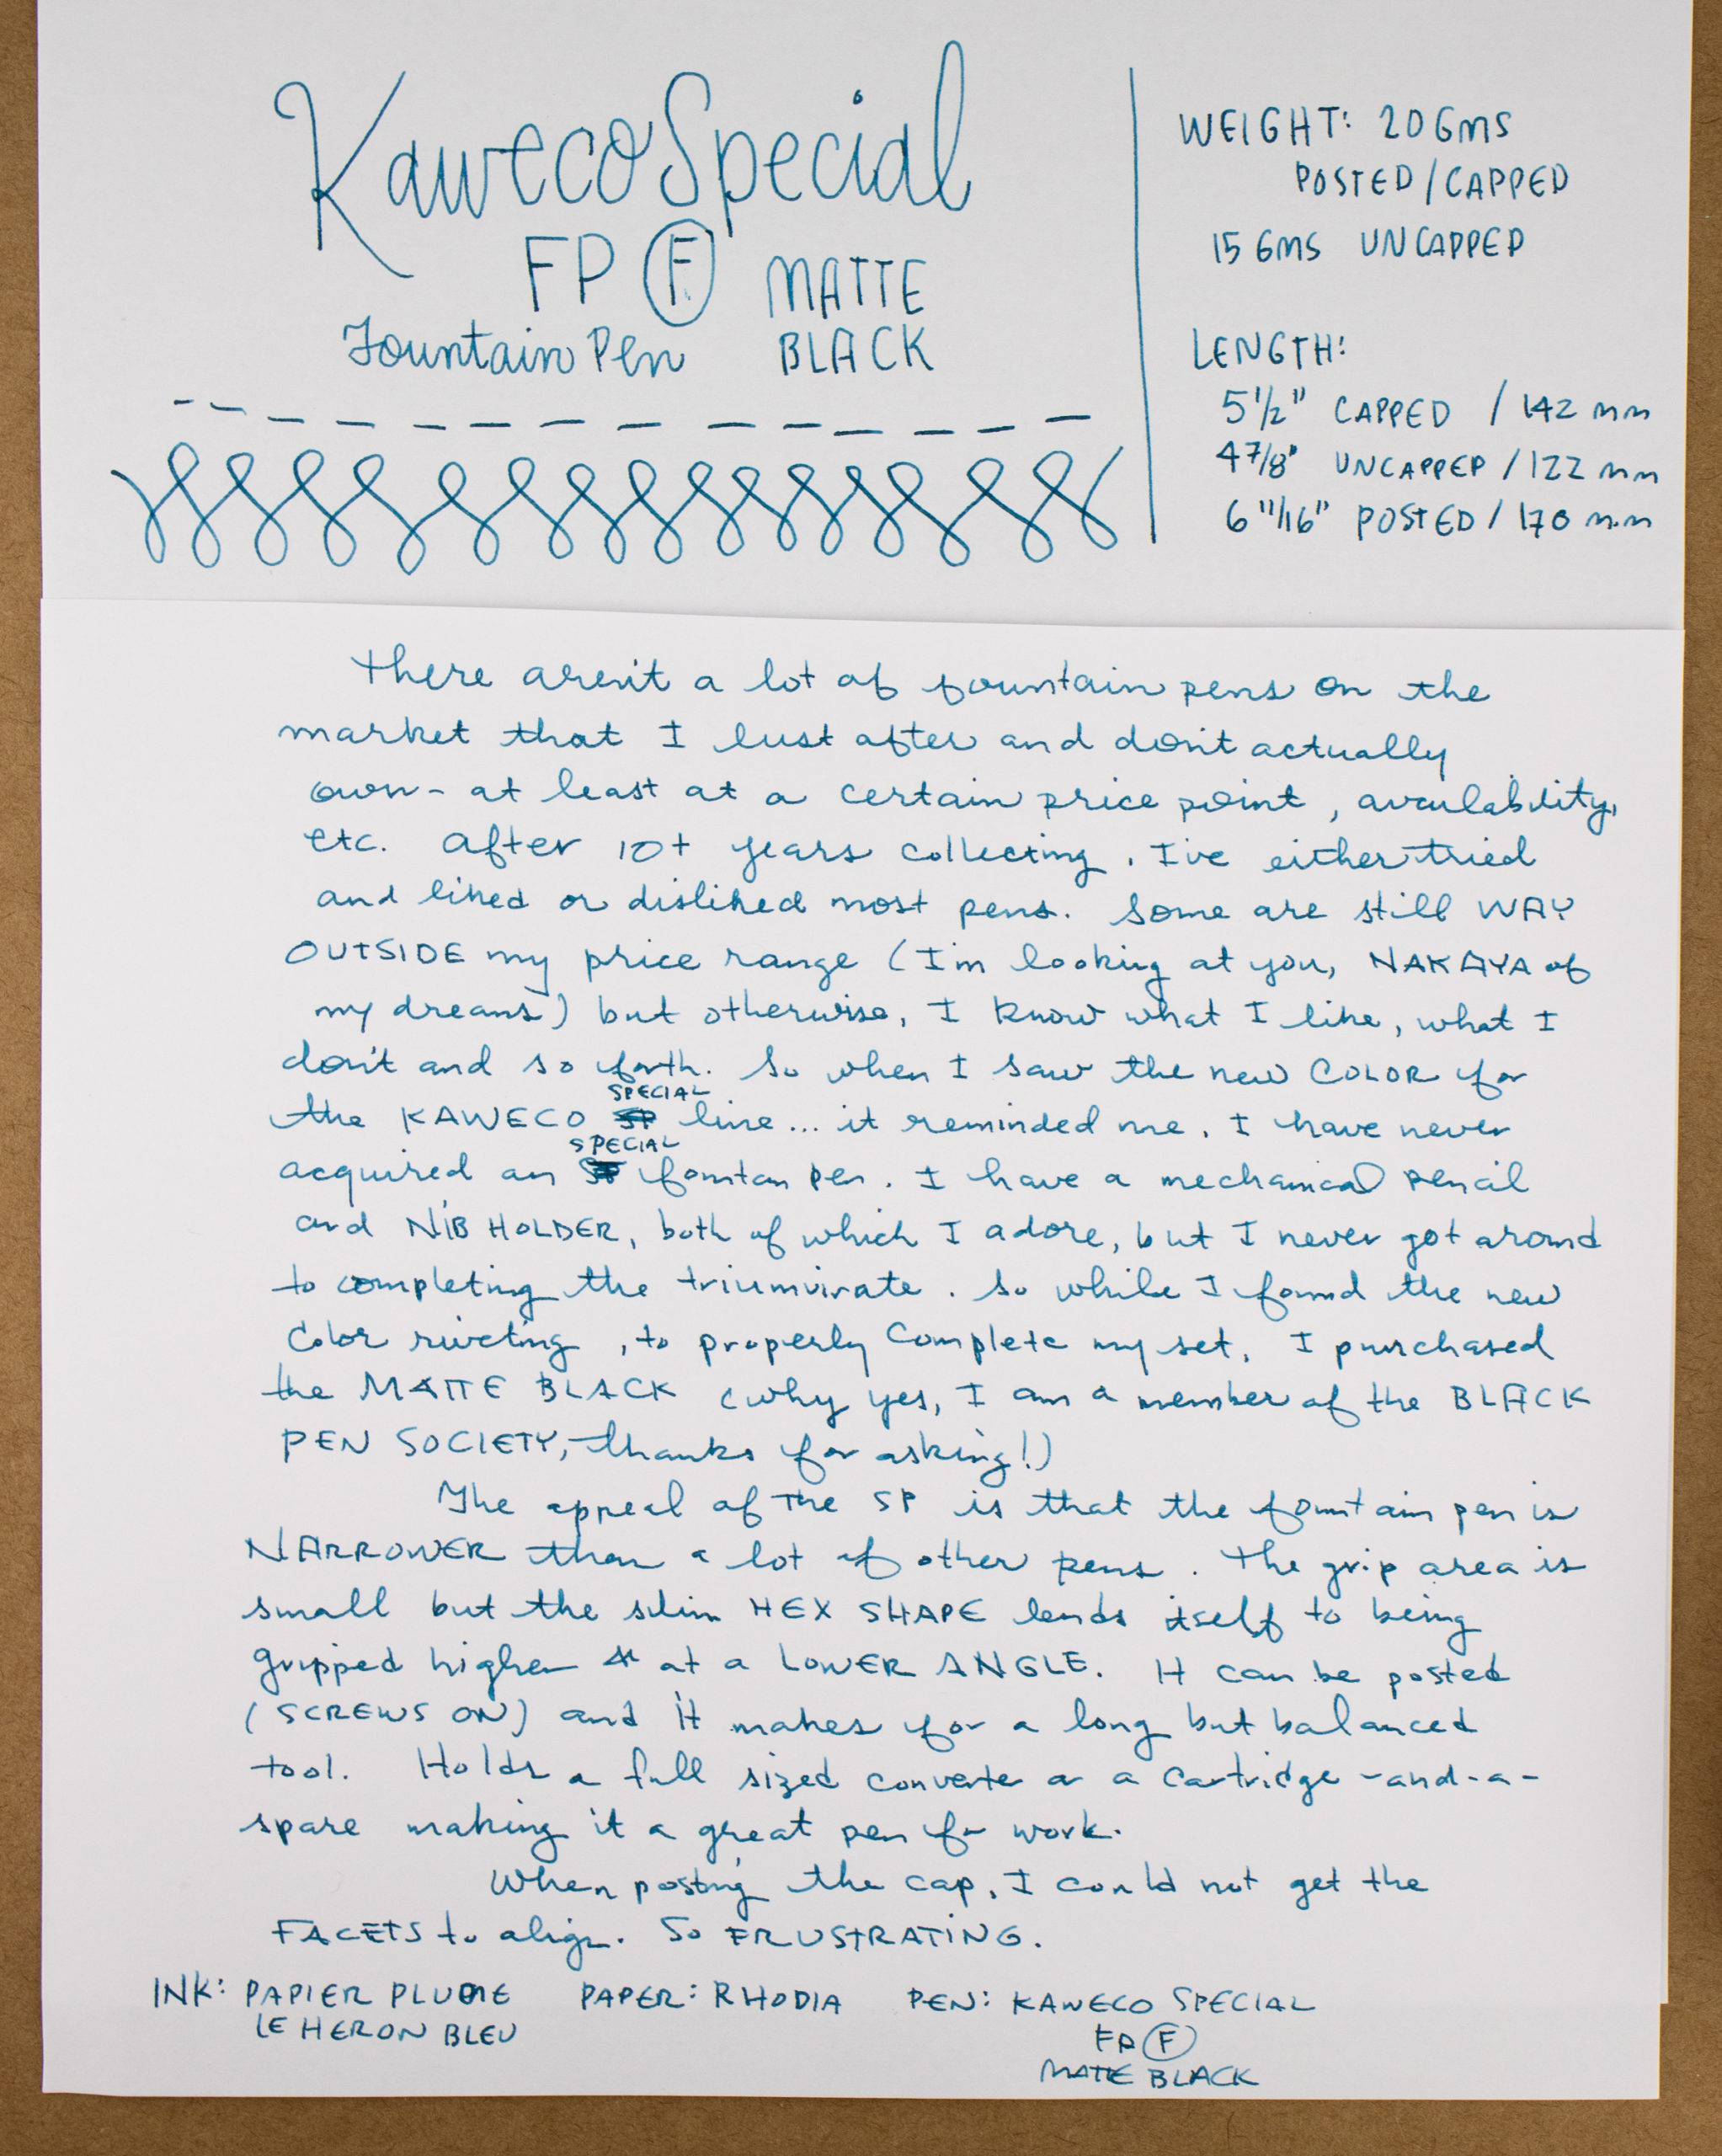 Kaweco Special
FP F MATTE
Fountain Pen BLACK
WEIGHT: 20 GMS
POSTED/CAPPED
15 GMS UNCAPPED
LENGTH:
5 1/2" CAPPED / 142 mm
4 7/8" UNCAPPED / 122 mm
6 11/16" POSTED / 170 mm
There aren't a lot of fountain pens on the
market that I lust after and don't actually
own - at least at a certain price point, availability,
etc. After 10+ years collecting, I've either tried
and liked or disliked most pens. Some are still WAY
OUTSIDE my price range (I'm looking at you, NAKAYA of
my dreams) but otherwise, I know what I like, what I
don't and so forth. So when I saw the new COLOR for
the KAWECO SPECIAL line... it reminded me, I have never
acquired an SPECIAL fountain pen. I have a mechanical pencil
and NIB HOLDER, both of which I adore, but I never got around
to completing the triumvirate. So while I found the new
color riveting, to properly complete my set, I purchased
the MATTE BLACK (why yes, I am a member of the BLACK
PEN SOCIETY, thanks for asking!)
The appeal of the SP is that the fountain pen is
NARROWER than a lot of other pens. The grip area is
small but the slim HEX SHAPE lends itself to being
gripped higher at a LOWER ANGLE. It can be posted
(SCREWS ON) and it makes for a long but balanced
tool. Holds a full sized converter or a cartridge-and-a-
spare making it a great pen for work.
When posting the cap, I could not get the
FACETS to align. So FRUSTRATING.
INK: PAPIER PLUME PAPER: RHODIA PEN: KAWECO SPECIAL
LE HERON BLEU
FP F
MATTE BLACK